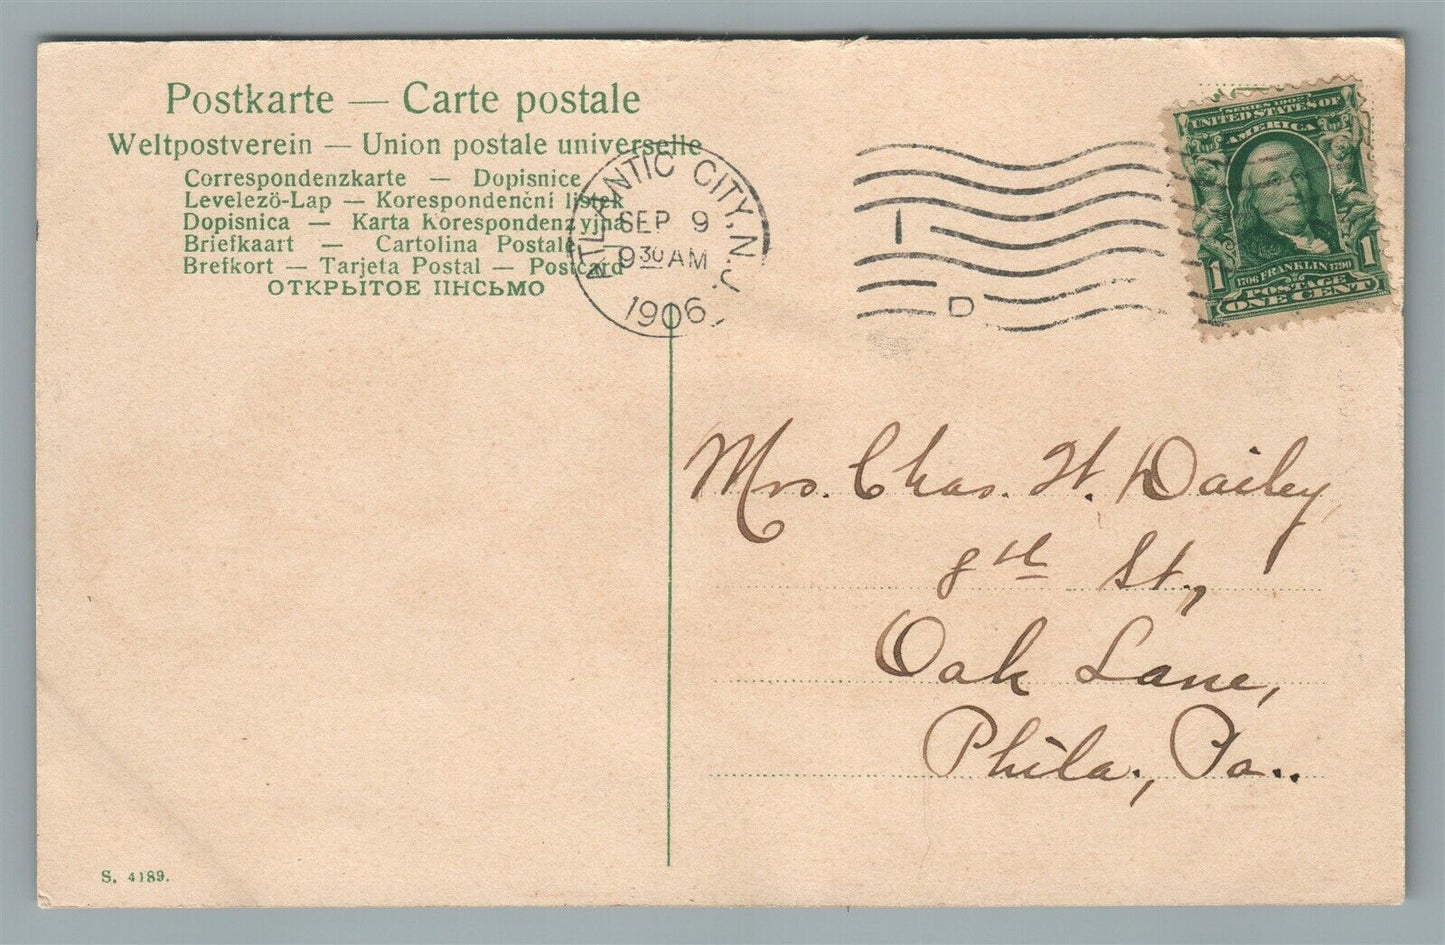 Postkarte — Carte postale
Weltpostverein — Union postale universelle
Correspondenzkarte — Dopisnice
Levelező-Lap — Korespondenční lístek
Dopisnica — Karta Korespondenzyjna
Briefkaart — Cartolina Postale
Brefkort — Tarjeta Postal — Postcard
ОТКРЫТОЕ ПИСЬМО
ATLANTIC CITY, N.J.
SEP 9
9 30 AM
1906
I
D
SERIES 1902
UNITED STATES OF
AMERICA
1706 FRANKLIN 1790
1 POSTAGE 1
ONE CENT
Mrs. Chas. W. Dailey,
8th St.,
Oak Lane,
Phila., Pa..
S. 4189.